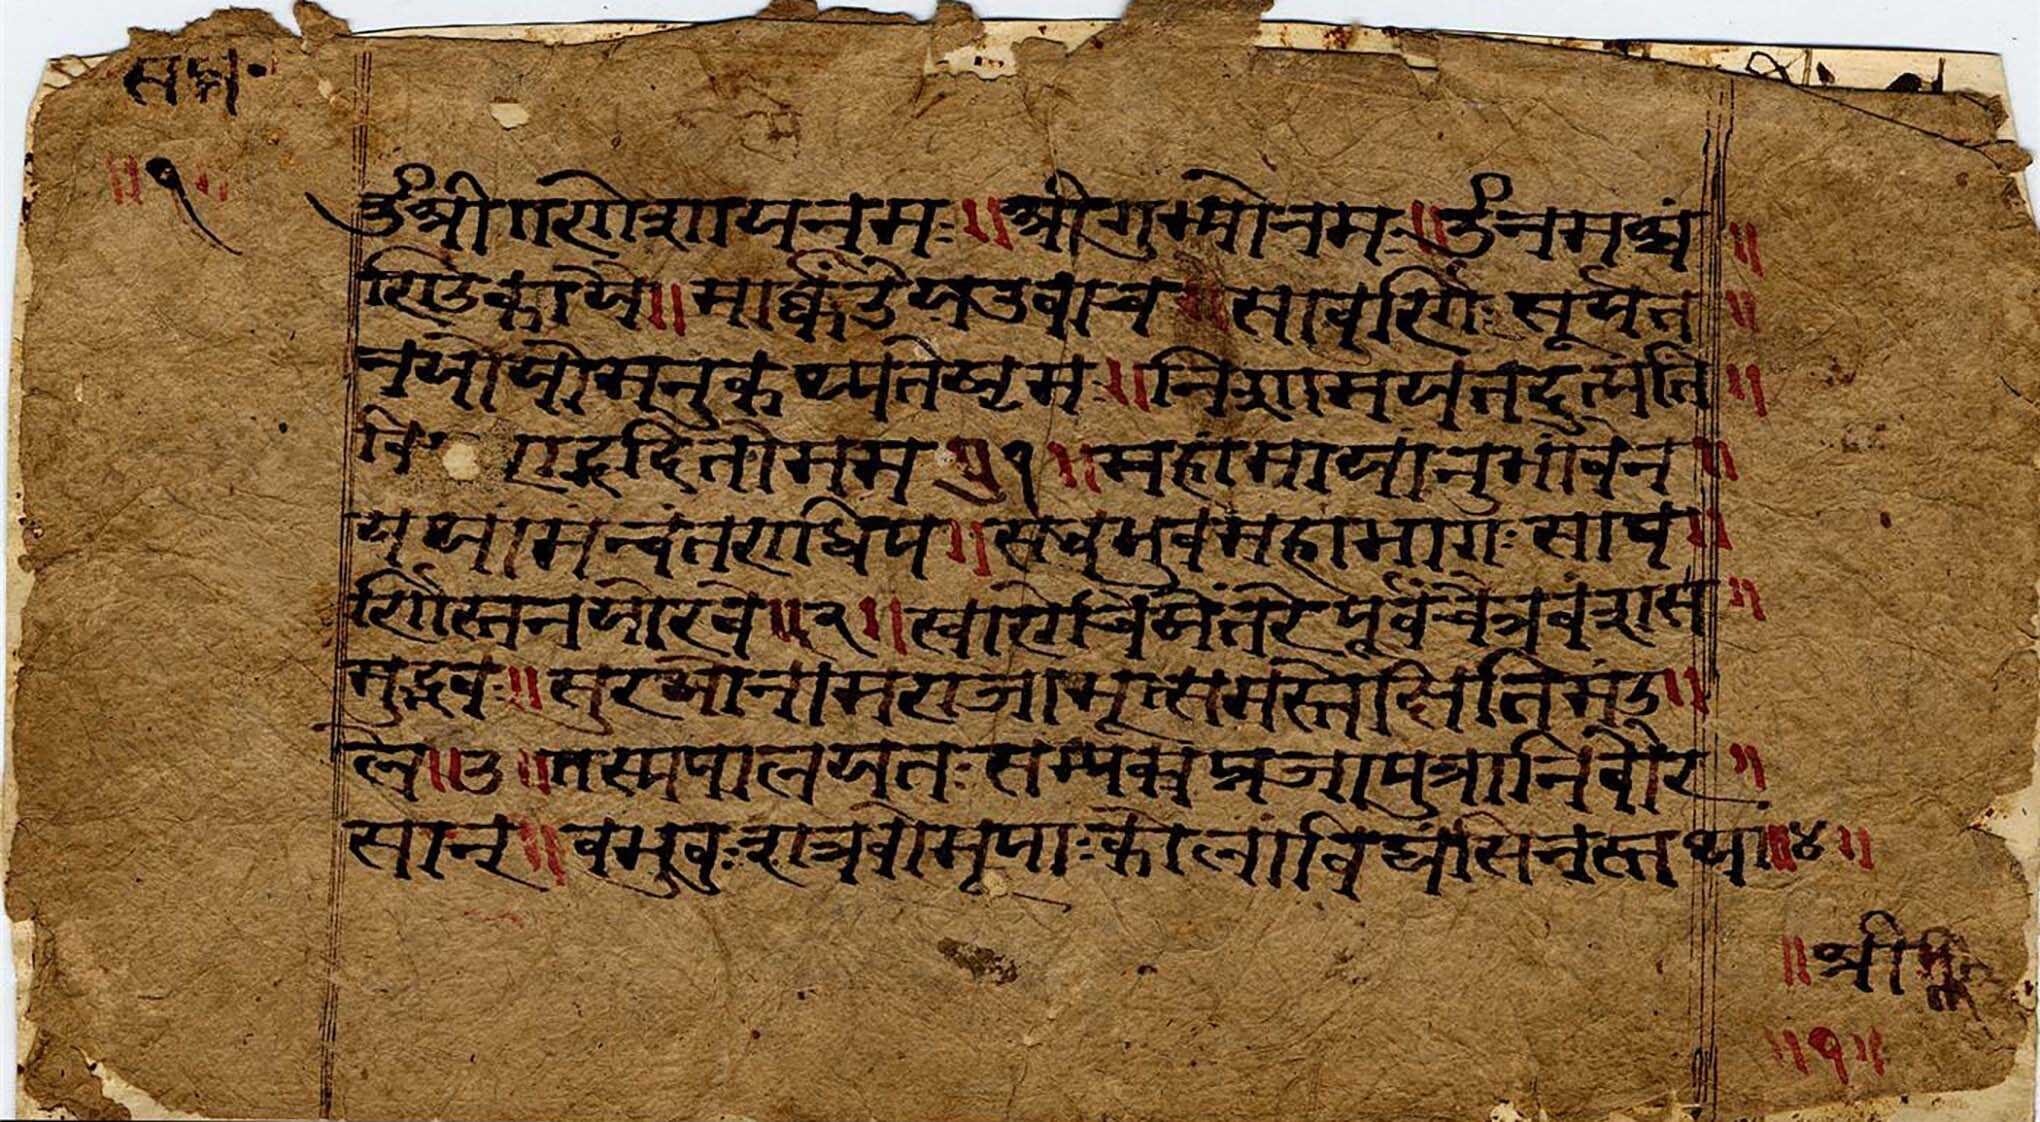 सप्त॰
॥१॥
ॐ श्रीगणेशाय नमः ॥ श्रीगुरुभ्यो नमः ॥ ॐ नमश्चं ॥
णिडकायै ॥ मार्क्कंडेय उवाच ॥ सावर्णिः सूर्यत ॥
नयो यो मनु कथ्यतेष्टमः ॥ निशामय तदुत्पत्तिं ॥
वि राद्गदितो मम ॥१॥ महामायानुभावेन ॥
यथा मन्वंतराधिप ॥ स बभुव महाभागः साव ॥
र्णिस्तनयो रवे ॥२॥ स्वारोचिषेंतरे पूर्वं चैत्रवंशस ॥
मुद्भवः ॥ सुरथो नाम राजाभूत्समस्ते क्षितिमंड ॥
ले ॥३॥ तस्य पालयतः सम्यक् प्रजा पुत्रानिवौर ॥
सान् ॥ बभुवुः शत्रवो भूपाः कोलाविध्वंसिनस्तथा ॥४॥
॥ श्री
॥१॥